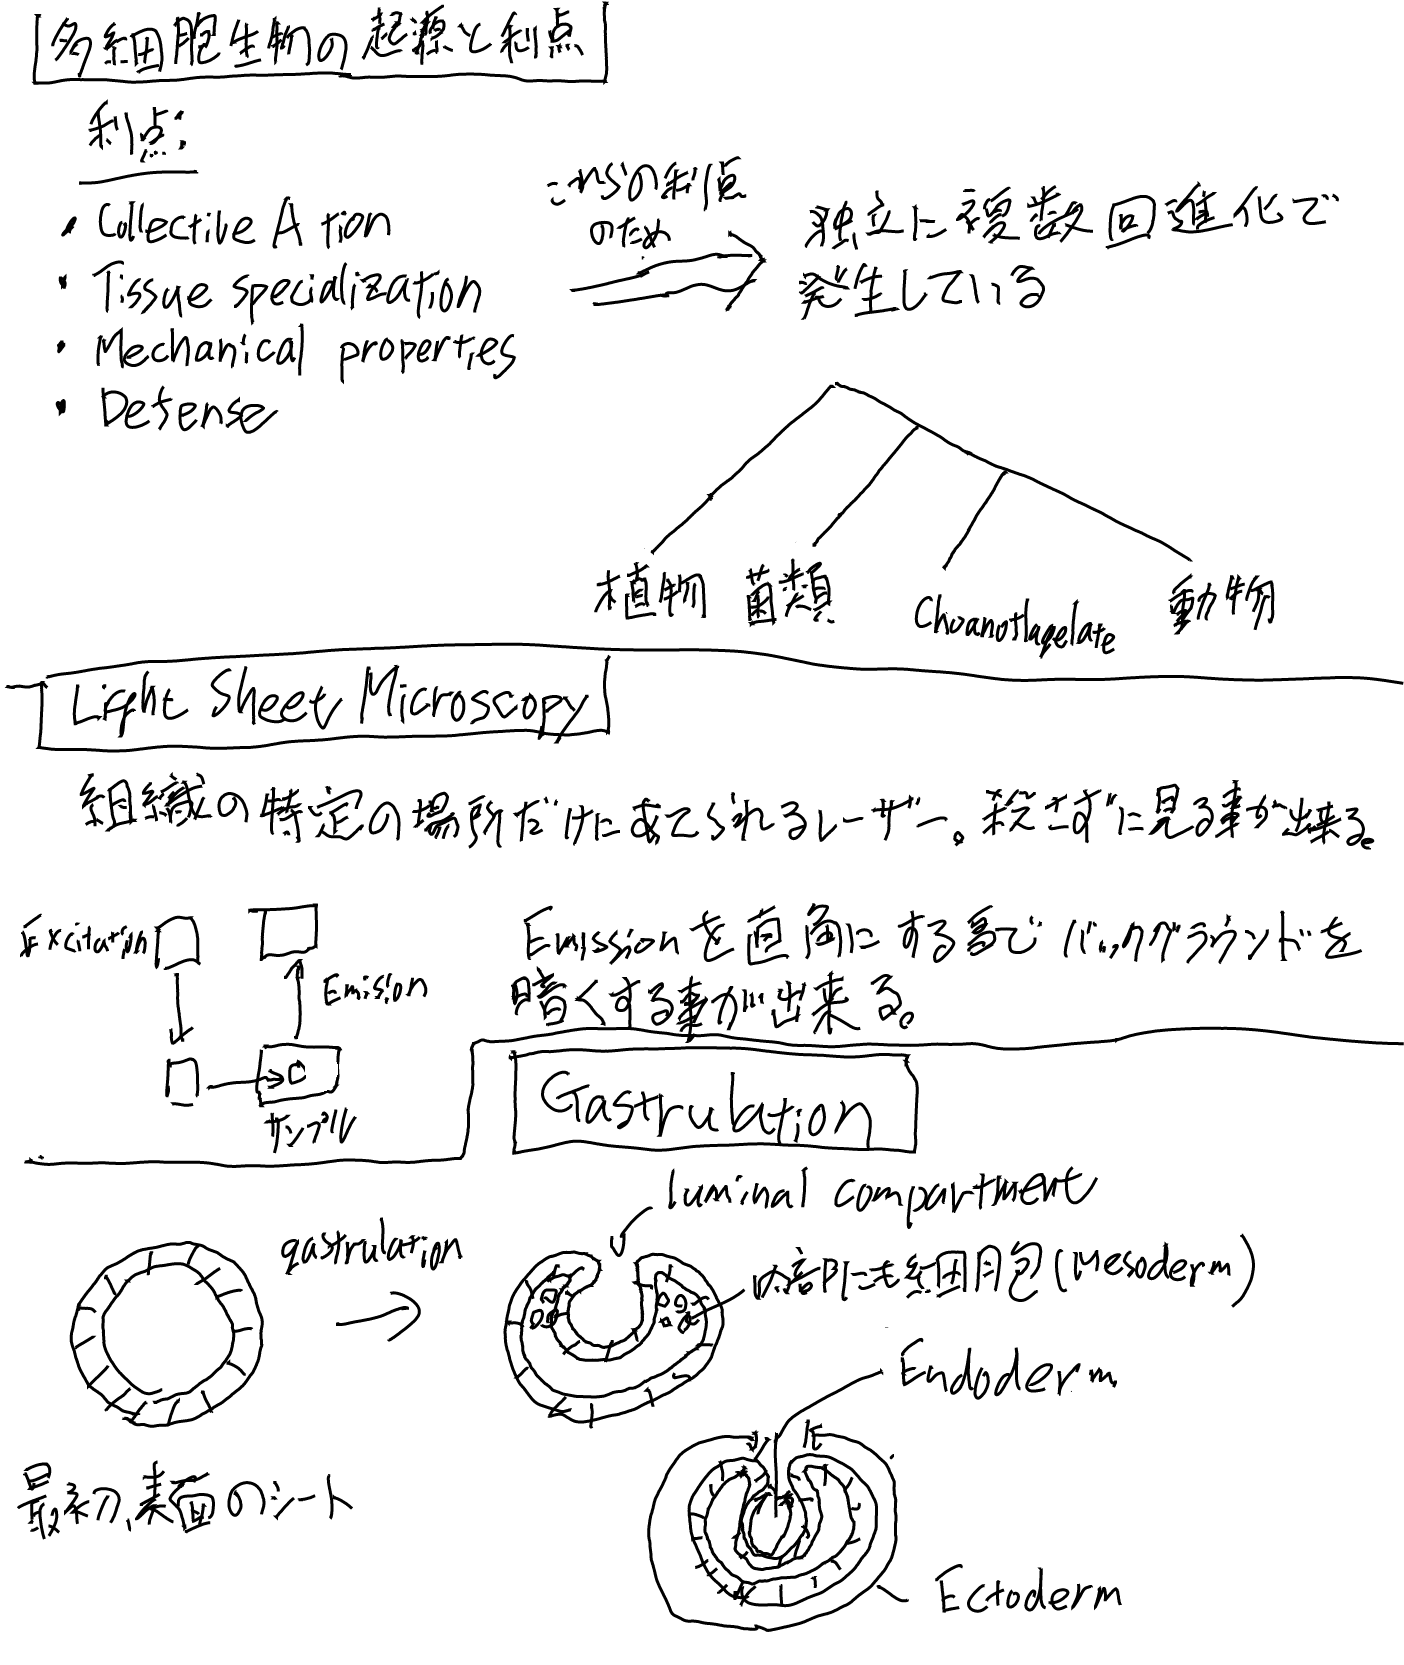 多細胞生物の起源と利点
利点:
・Collective Action
・Tissue specialization
・Mechanical properties
・Defense
これらの利点
のため
独立に複数回進化で
発生している
植物 菌類 Choanoflagelate 動物
Light Sheet Microscopy
組織の特定の場所だけにあてられるレーザー。殺さずに見る事が出来る。
Excitation
Emission
サンプル
Emissionを直角にする事でバックグラウンドを
暗くする事が出来る。
Gastrulation
luminal compartment
gastrulation
内部にも細胞(Mesoderm)
Endoderm
最初、表面のシート
Ectoderm